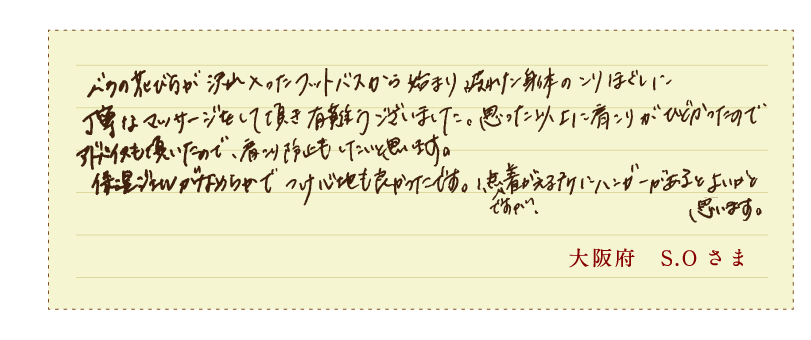 バラの花びらが沢山入ったフットバスから始まり疲れた身体のこりほぐしに
丁寧なマッサージをして頂き有難うございました。思った以上に肩こりがひどかったので
アドバイスも頂いたので、肩こり防止もしたいと思います。
保湿ジェルがなめらかでつけ心地も良かったです。1点着がえる所にハンガーがあるとよいかと
ですが、 思います。
大阪府 S.O さま